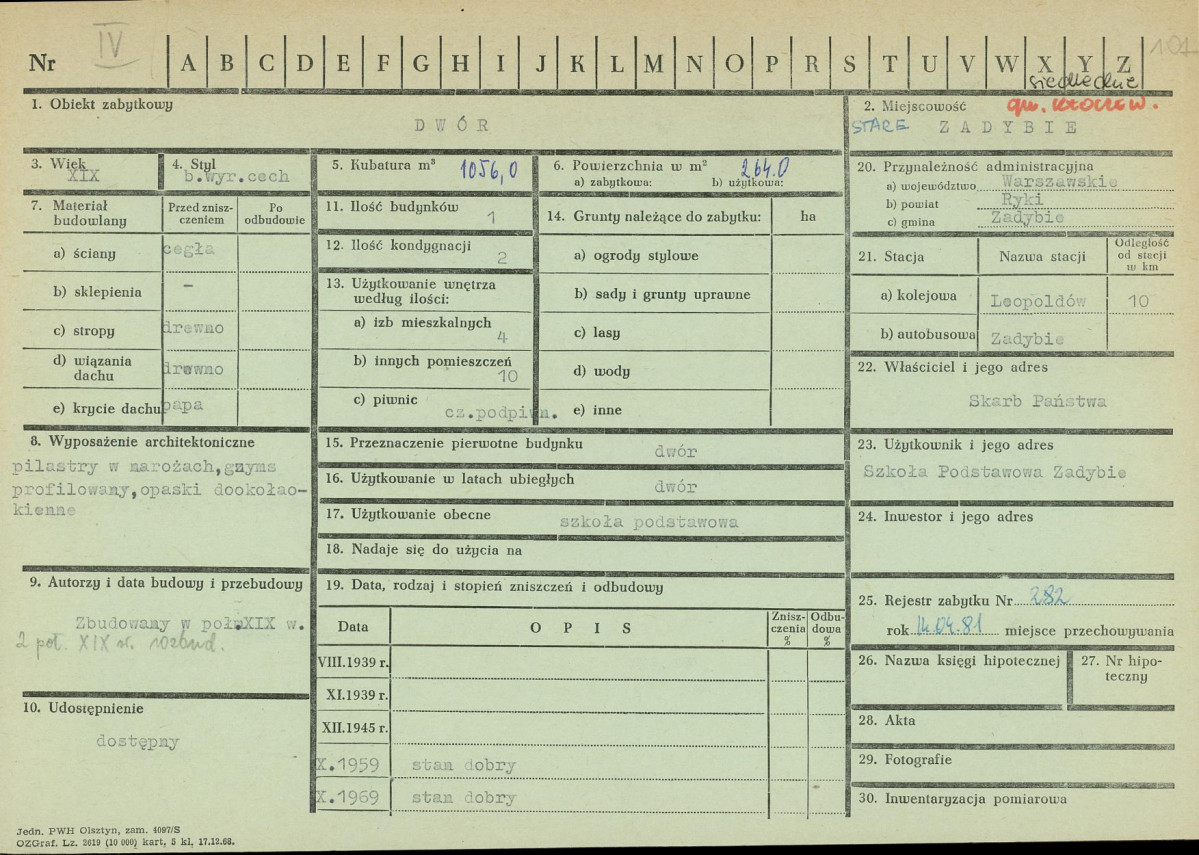 Nr IV A B C D E F G H I J K L M N O P R S T U V W X Y Z 101
siedleckie
1. Obiekt zabytkowy
DWÓR
2. Miejscowość gm. Kłoczew.
STARE ZADYBIE
3. Wiek
XIX
4. Styl
b.wyr.cech
5. Kubatura m³ 1056,0
6. Powierzchnia w m² 264.0
a) zabytkowa: b) użytkowa:
20. Przynależność administracyjna
a) województwo Warszawskie
b) powiat Ryki
c) gmina Zadybie
7. Materiał budowlany
Przed znisz-
czeniem
Po
odbudowie
a) ściany cegła
b) sklepienia -
c) stropy drewno
d) wiązania
dachu drewno
e) krycie dachu papa
11. Ilość budynków 1
12. Ilość kondygnacji 2
13. Użytkowanie wnętrza
według ilości:
a) izb mieszkalnych 4
b) innych pomieszczeń 10
c) piwnic cz.podpiwn.
14. Grunty należące do zabytku: ha
a) ogrody stylowe
b) sady i grunty uprawne
c) lasy
d) wody
e) inne
21. Stacja Nazwa stacji
Odległość
od stacji
w km
a) kolejowa Leopoldów 10
b) autobusowa Zadybie
22. Właściciel i jego adres
Skarb Państwa
8. Wyposażenie architektoniczne
pilastry w narożach,gzyms
profilowany,opaski dookołao-
kienne
15. Przeznaczenie pierwotne budynku dwór
16. Użytkowanie w latach ubiegłych dwór
17. Użytkowanie obecne szkoła podstawowa
18. Nadaje się do użycia na
23. Użytkownik i jego adres
Szkoła Podstawowa Zadybie
24. Inwestor i jego adres
9. Autorzy i data budowy i przebudowy
Zbudowany w poł.XIX w.
2 poł. XIX w. rozbud.
10. Udostępnienie
dostępny
19. Data, rodzaj i stopień zniszczeń i odbudowy
Data OPIS
Znisz-
czenia
%
Odbu-
dowa
%
VIII.1939 r.
XI.1939 r.
XII.1945 r.
X.1959 stan dobry
X.1969 stan dobry
25. Rejestr zabytku Nr 282
rok 14.04.81 miejsce przechowywania
26. Nazwa księgi hipotecznej
27. Nr hipo-
teczny
28. Akta
29. Fotografie
30. Inwentaryzacja pomiarowa
Jedn. PWH Olsztyn, zam. 4097/S
OZGraf. Lz. 2619 (10 000) kart. 5 kl. 17.12.68.